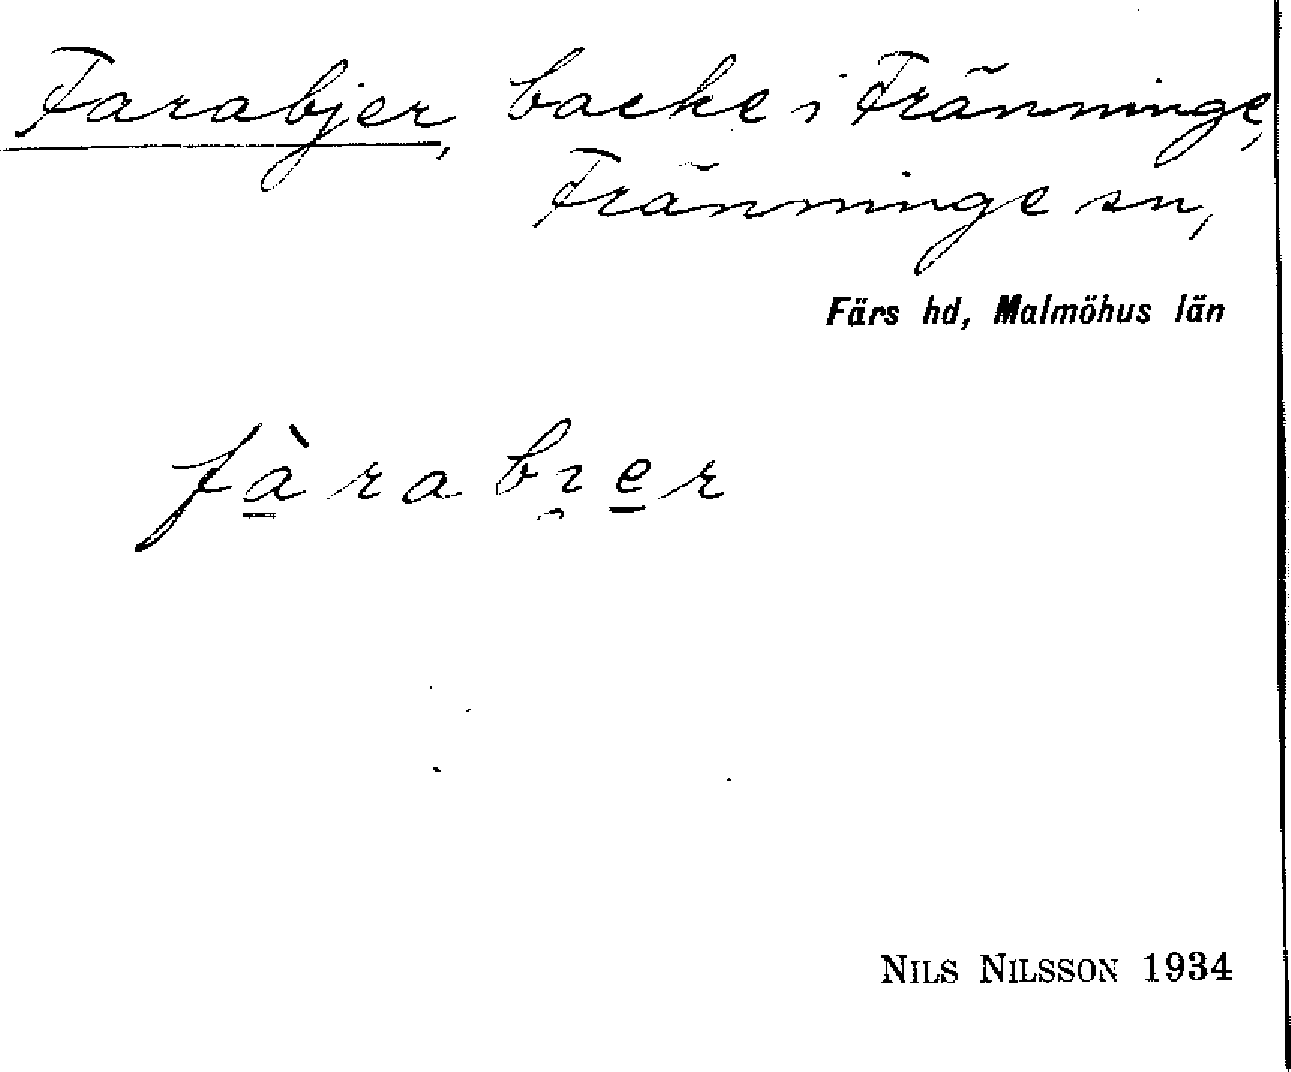 Farabjer, backe i Fränninge,
Fränninge sn,
Färs hd, Malmöhus län
fàrabi̯er
NILS NILSSON 1934